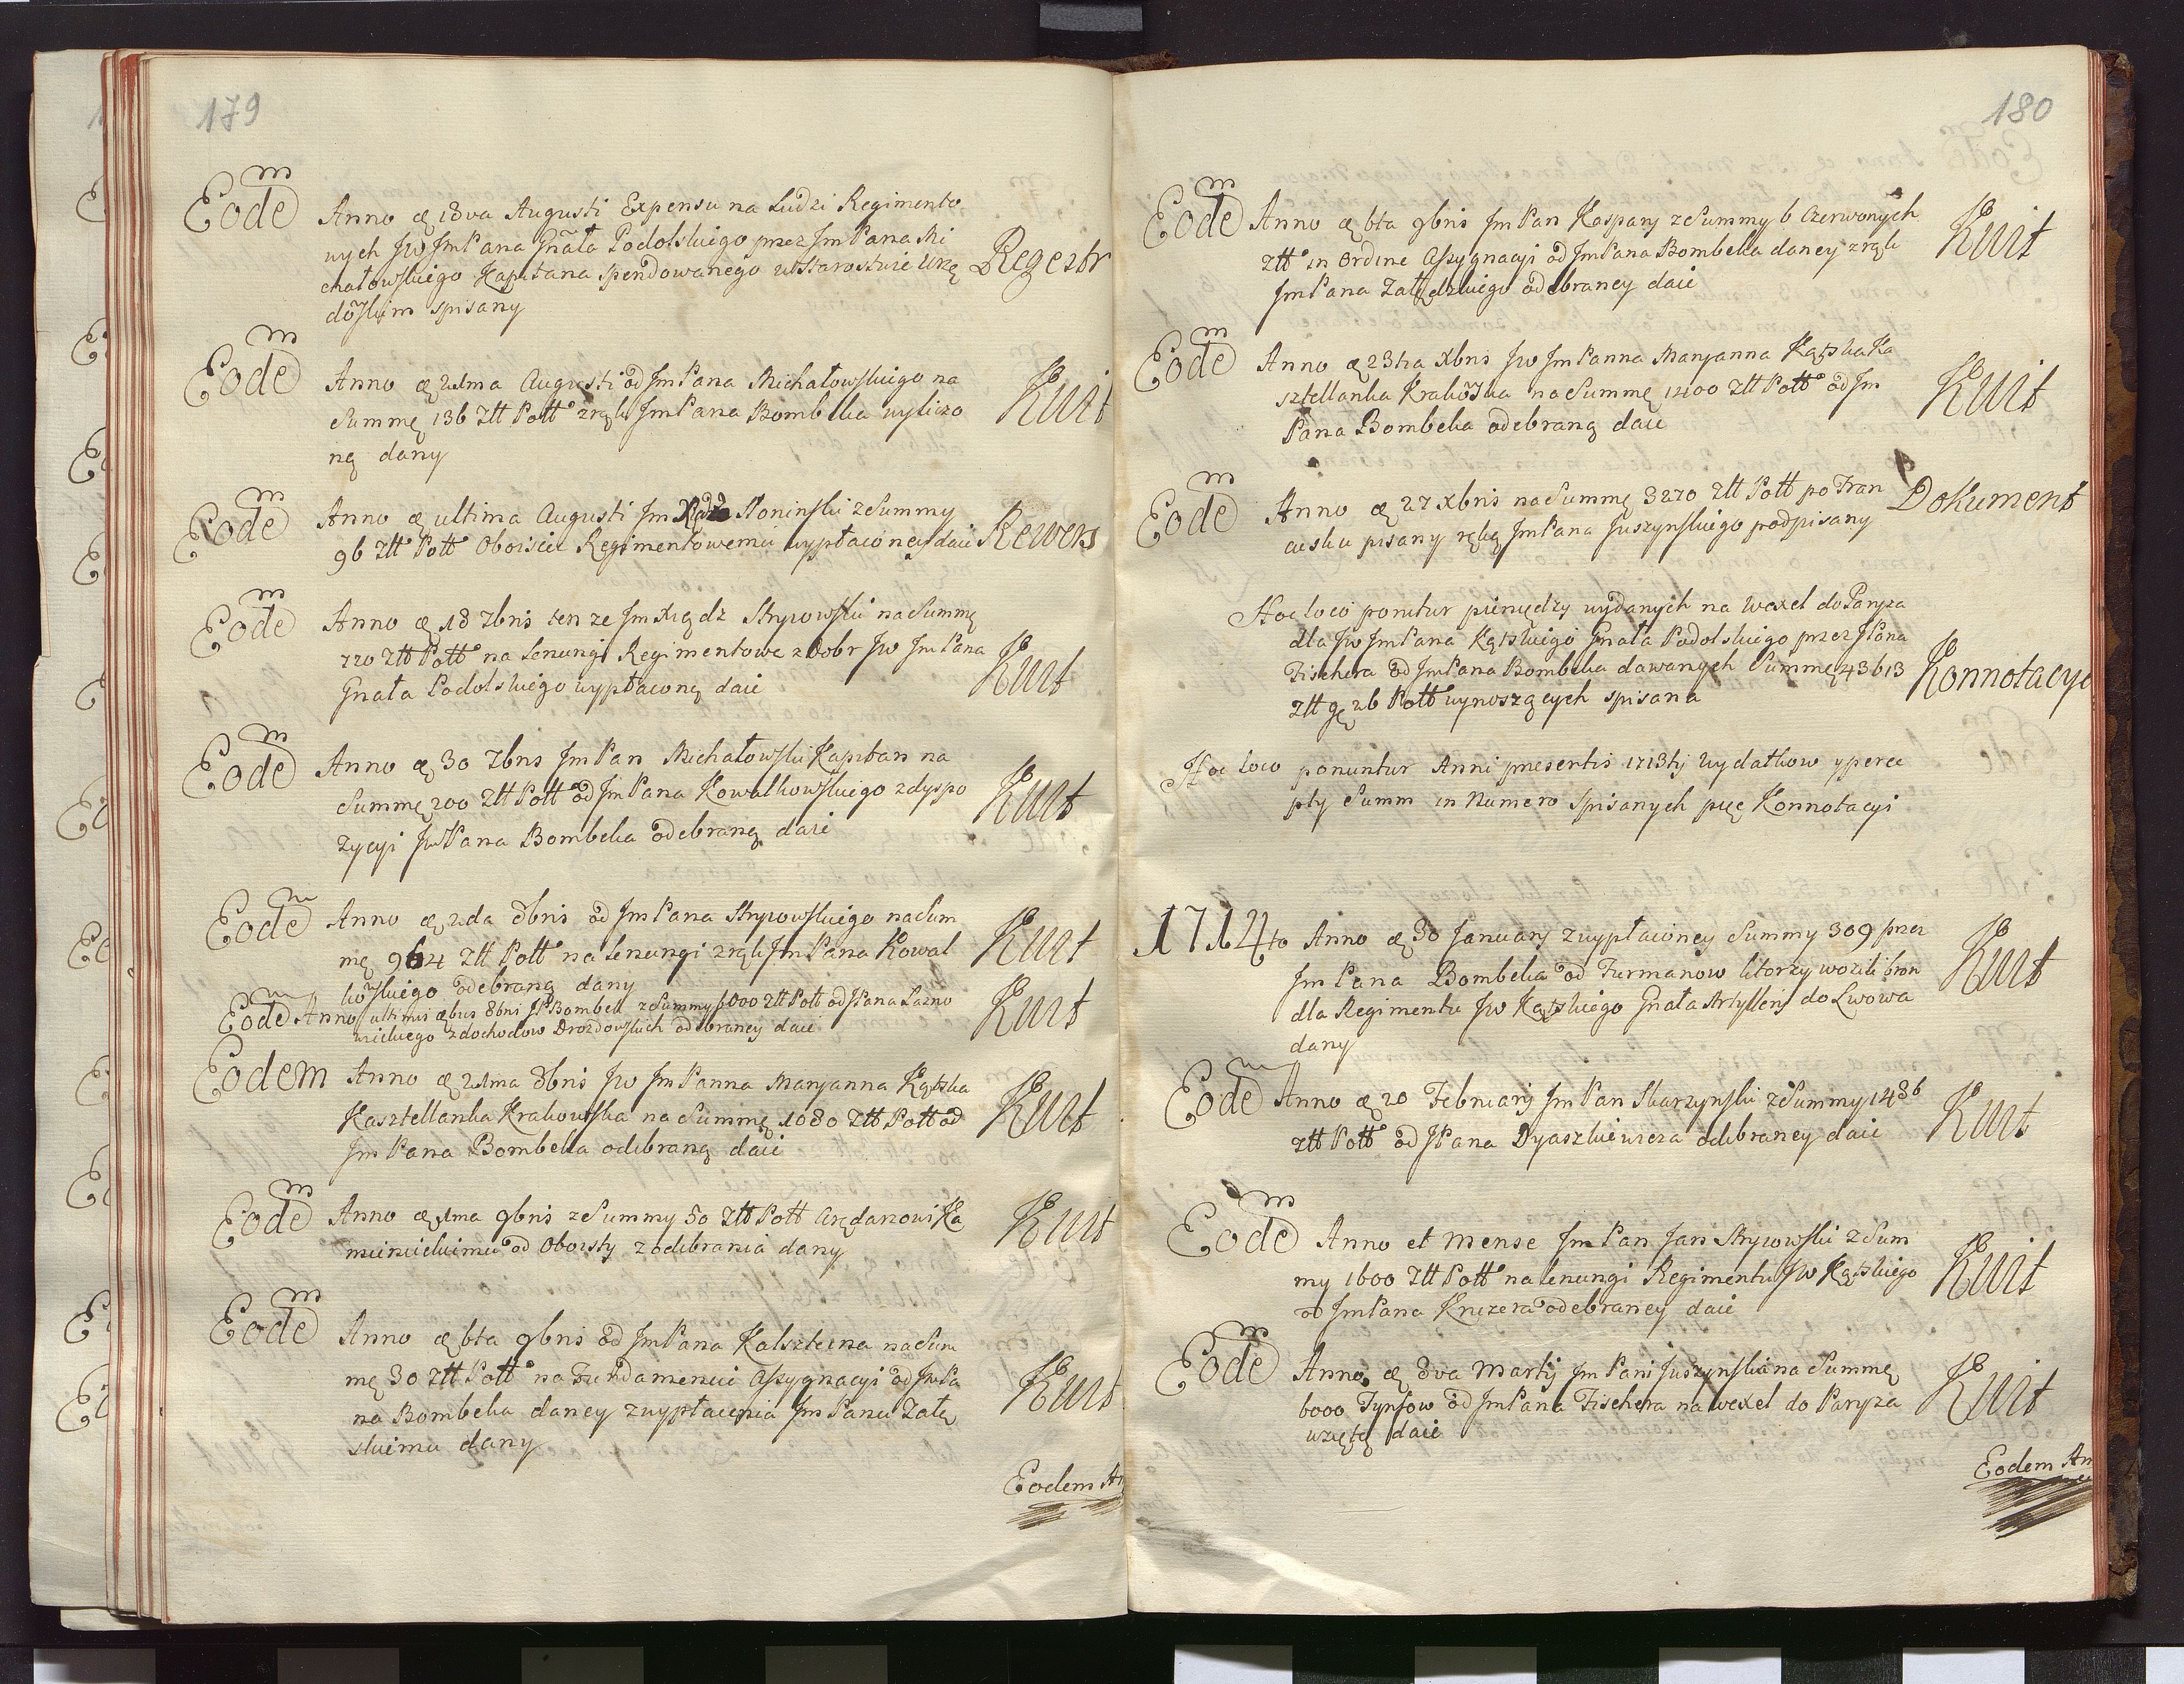 179
Eodem Anno æ 18va Augusti Expensu na Ludzi Regimento
wych Jw JmPana Gnała Podolskiego przez JmPana Mi
chałowskiego Kapitana spendowanego w Starostwie Urzę Regestr
dowskim spisany
Eodem Anno æ 21ma Augusti od JmPana Michałowskiego na
Summę 136 Złł Poll z rąk JmPana Bombeka wyliczo Kwit
ną dany
Eodem Anno æ ultima Augusti Jm Xdz Słoninski z Summy
96 Złł Poll Oboiście Regimentowemu wypłaconey daie Rewers
Eodem Anno æ 18 7bris ten ze Jm Xiądz Stryiowski na Summę
720 Złł Poll na Lenungi Regimentowe z Dobr Jw JmPana
Gnała Podolskiego wypłaconą daie Kwit
Eodem Anno æ 30 7bris JmPan Michałowski Kapitan na
Summę 200 Złł Poll od JmPana Kowalkowskiego z dyspo Kwit
zycyi JmPana Bombeka odebraną daie
Eodem Anno æ 2da 8bris od JmPana Stryiowskiego na Sum
mę 964 Złł Poll na Lenungi z rąk JmPana Kowal Kwit
kowskiego odebraną dany
Eodem Anno ultimis æbus 8bris JP Bombek z Summy 6000 Złł Poll od JPana Lazno
wickiego z dochodow Drozdowskich odebraney daie Kwit
Eodem Anno æ 21ma 8bris Jw Jm Panna Maryanna Kątska
Kasztellanka Krakowska na Summę 1080 Złł Poll od Kwit
JmPana Bombeka odebraną daie
Eodem Anno æ 1ma 9bris z Summy 50 Złł Poll Arędarzowi Ka
mienickiemu od Oborsty z odebrania dany Kwit
Eodem Anno æ 6ta 9bris od JmPana Kalszteina na Sum
mę 30 Złł Poll na Fundamencie Assygnacyi od JmPa
na Bombeka daney z wypłacenia Jm Panu Załę Kwit
skiemu dany
Eodem An
180
Eodem Anno æ 6ta 9bris Jm Pan Kaspary z Summy 6 Czerwonych
Złł in Ordine Assygnacyi od JmPana Bombeka daney z rąk Kwit
JmPana Załędzkiego odebraney daie
Eodem Anno æ 23tia Xbris Jw Jm Panna Maryanna Kątska Ka
sztellanka Krakowska na Summę 1400 Złł Poll od Jm Kwit
Pana Bombeka odebraną daie
Eodem Anno æ 27 Xbris na Summę 3270 Złł Poll po Fran Dokument
cusku pisany ręką JmPana Juszynskiego podpisany
Hoc loco ponitur pieniędzy wydanych na Wexel do Paryza
dla Jw JmPana Kątskiego Gnała Podolskiego przez JPana
Fischera od JmPana Bombeka dawanych Summę 43613 Konnotacye
Złł gr 26 Poll wynoszących spisana
Hoc loco ponuntur Anni presentis 1713tij wydatkow y perce
pty Summ in Numero spisanych pięc Konnotacyi
1714to Anno æ 30 January z wypłaconey Summy 309 przez
JmPana Bombeka od Furmanow ktorzy wozili bron Kwit
dla Regimentu Jw Kątskiego Gnała Artylleryi do Lwowa
dany
Eodem Anno æ 20 February JmPan Skarzynski z Summy 1486
Złł Poll od JPana Dyaszkiewicza odebraney daie Kwit
Eodem Anno et Mense JmPan Jan Stryiowski z Sum
my 1600 Złł Poll na Lenungi Regimentu Jw Kątskiego Kwit
od JmPana Knezera odebraney daie
Eodem Anno æ 3va Martij Jm Pani Juszynska na Summę
6000 Tynfow od JmPana Fischera na wexel do Paryza Kwit
wziętą daie
Eodem An